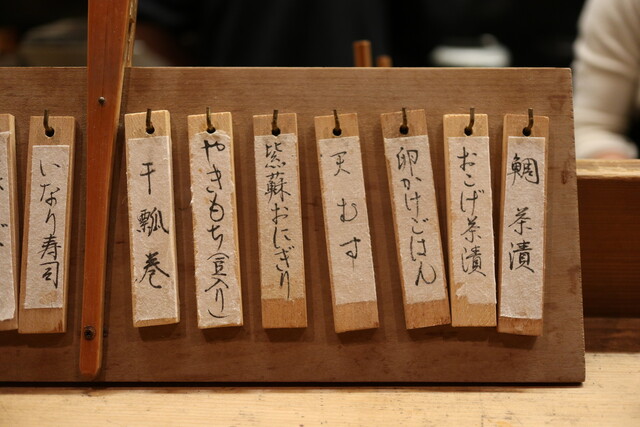 鯛茶漬
おこげ茶漬
卵かけごはん
天むす
紫蘇おにぎり
やきもち(豆入り)
干瓢巻
いなり寿司